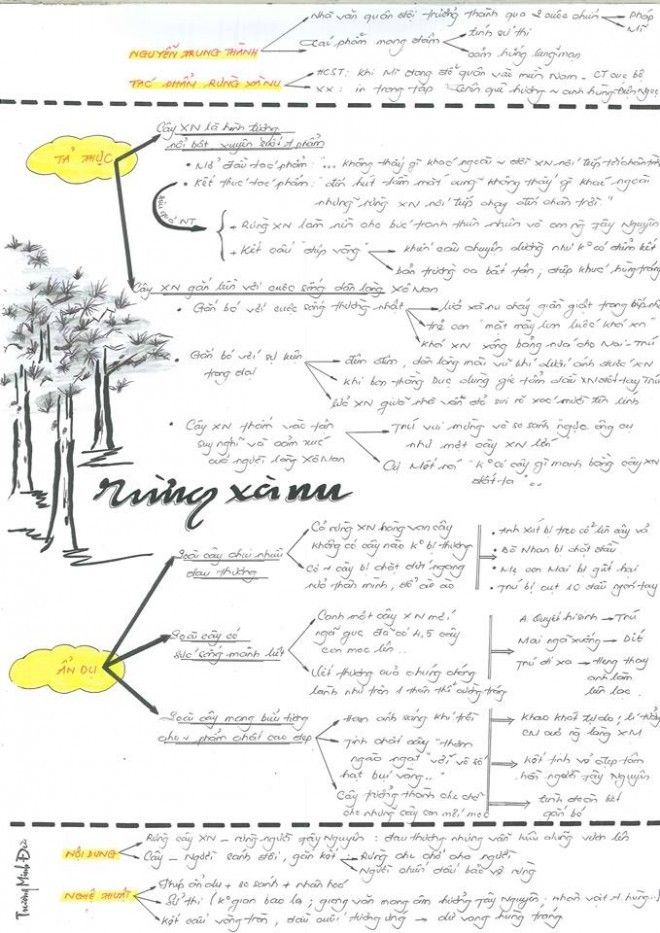 Nhà văn quân đội trưởng thành qua 2 cuộc chiến
Pháp
Mĩ
NGUYỄN TRUNG THÀNH
Tác phẩm mang đậm
tính sử thi
cảm hứng lãng mạn
TÁC PHẨM RỪNG XÀ NU
HCST: khi Mĩ đang đổ quân vào miền Nam - CT cục bộ
XX: in trong tập "Trên quê hương ~ anh hùng Điện Ngọc
TẢ THỰC
Cây XN là hình tượng
nổi bật xuyên suốt t phẩm
• Mở đầu tác phẩm: "... không thấy gì khác ngoài ~ đồi XN nối tiếp tới chân trời
• Kết thúc tác phẩm: đến hút tầm mắt cũng không thấy gì khác ngoài
những rừng XN nối tiếp chạy đến chân trời"
hiệu quả NT
+ Rừng XN làm nền cho bức tranh thiên nhiên và con ng Tây Nguyên
+ Kết cấu "điệp vòng"
khiến câu chuyện dường như k° có điểm kết
bản trường ca bất tận, điệp khúc hùng tráng
Cây XN gắn liền với cuộc sống dân làng Xô Man
• Gắn bó với cuộc sống thường nhật
lửa xà nu cháy giần giật trong bếp nhà
trẻ con "mặt mày lem luốc khói xn"
khói XN xông bảng nứa cho Mai - Trú
• Gắn bó với sự kiện
trọng đại
đêm đêm, dân làng mài vũ khí dưới ánh đuốc XN
khi bọn thằng Dục dùng giẻ tẩm dầu XN đốt tay Trú
lửa XN giữa nhà vẫn đỏ soi rõ xác mười tên lính
• Cây XN thấm vào tận
suy nghĩ và cảm xúc
của người làng Xô Man
Trú vui mừng và so sánh ngực ông cụ
như một cây XN lớn
Cụ Mết nói "k° có cây gì mạnh bằng cây XN
đất ta"..
rừng xà nu
ẨN DỤ
Loài cây chịu nhiều
đau thương
Cả rừng XN hàng vạn cây
không có cây nào k° bị thương
Có ~ cây bị chặt đứt ngang
nửa thân mình, đổ ào ào
• Anh Xút bị treo cổ lên cây vả
• Bà Nhan bị chặt đầu
• Mẹ con Mai bị giết hại
• Trú bị cụt 10 đầu ngón tay
Loài cây có
sức sống mãnh liệt
Cạnh một cây XN mới
ngã gục đã có 4,5 cây
con mọc lên..
Vết thương của chúng chóng
lành như trên 1 thân thể cường tráng
A. Quyết hi sinh → Trú
Mai ngã xuống → Dít
Trú đi xa → Heng thay
anh làm
liên lạc.
Loài cây mang biểu tượng
cho ~ phẩm chất cao đẹp
Ham ánh sáng khí trời
Tinh chất cây "thơm
ngào ngạt" với "vô số
hạt bụi vàng.."
Cây trưởng thành che chở
cho những cây con mới mọc
khao khát tự do; lí tưởng
CM của ng làng XM
kết tinh vẻ đẹp tâm
hồn người Tây Nguyên
tinh đoàn kết
gắn bó
Trương Minh Đức
NỘI DUNG
Rừng cây XN - rừng người Tây Nguyên: đau thương nhưng vẫn kiêu dũng vươn lên
Cây - Người sánh đôi, gắn kết
Rừng che chở cho người
Người chiến đấu bảo vệ rừng
NGHỆ THUẬT
Phép ẩn dụ + so sánh + nhân hoá
Sử thi (k° gian bao la; giọng văn mang âm hưởng Tây Nguyên; nhân vật a hùng..)
Kết cấu vòng tròn, đầu cuối tương ứng → dư vang hùng tráng